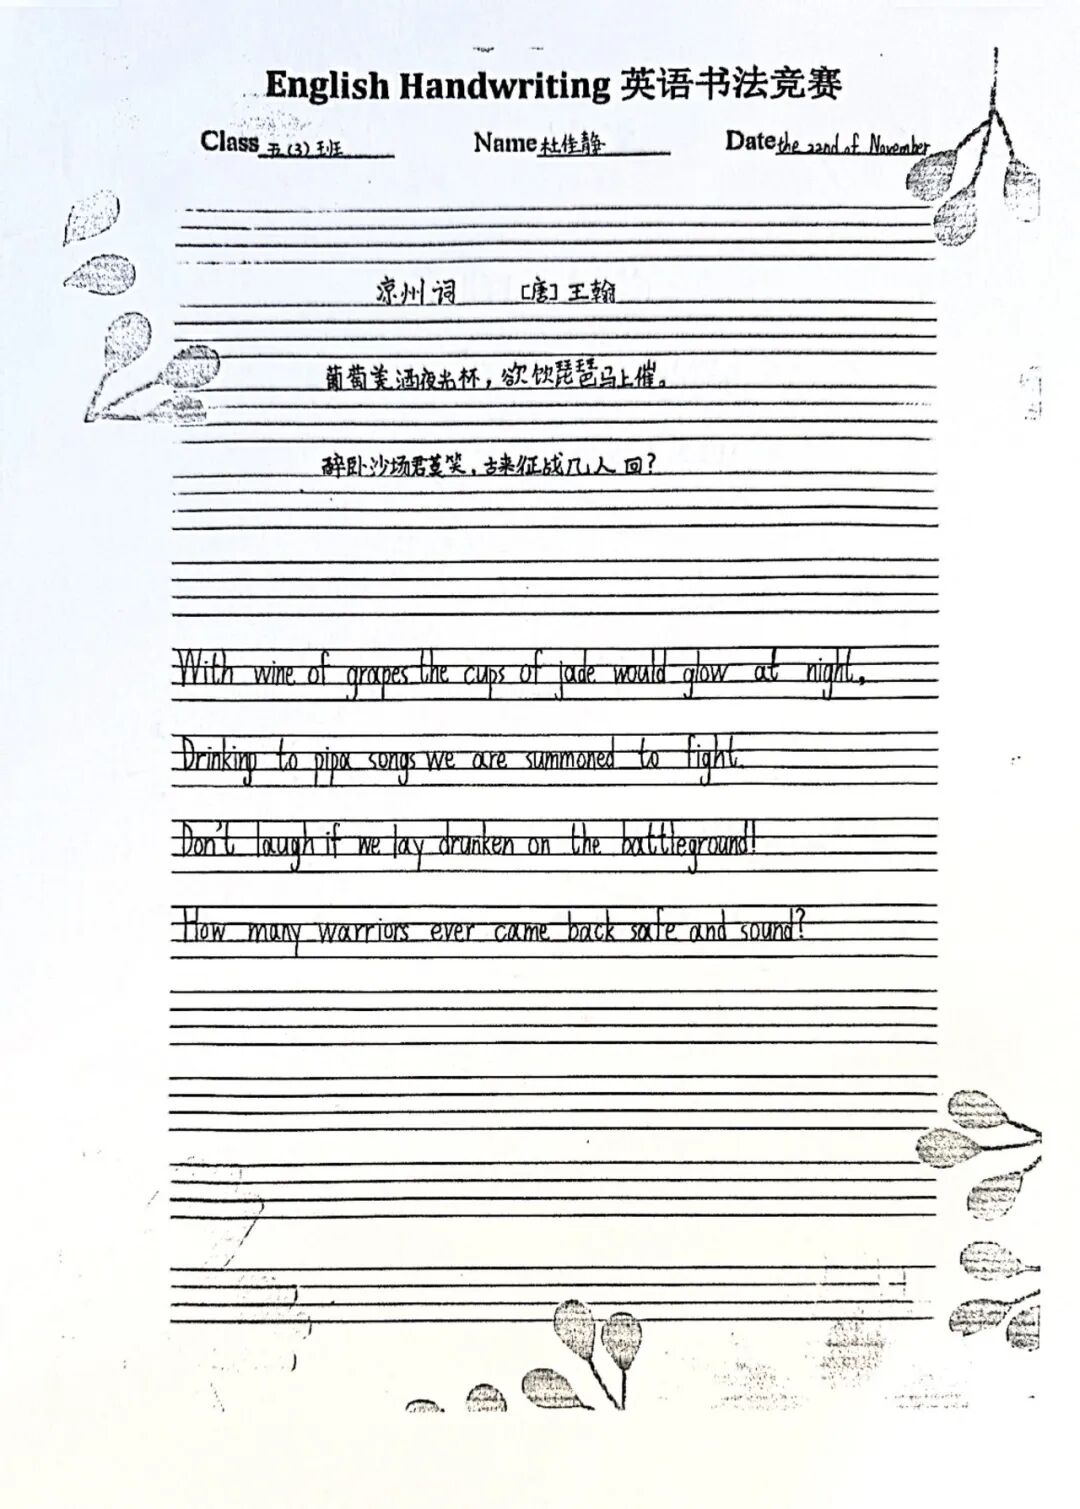 English Handwriting 英语书法竞赛
Class 五(3)班 Name 杜佳静 Date the 22nd of November
凉州词 [唐]王翰
葡萄美酒夜光杯，欲饮琵琶马上催。
醉卧沙场君莫笑，古来征战几人回？
With wine of grapes the cups of jade would glow at night,
Drinking to pipa songs we are summoned to fight.
Don't laugh if we lay drunken on the battleground!
How many warriors ever came back safe and sound?